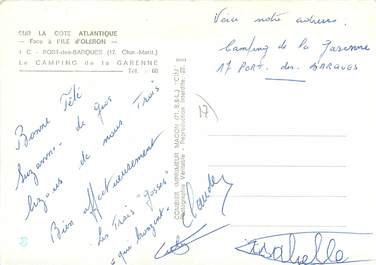 SUR LA COTE ATLANTIQUE
— Face à l'ILE d'OLERON —
1 C - PORT-des-BARQUES (17. Char.-Marit.)
Le CAMPING de la GARENNE
Tél. : 68
Bonne Fête
Suzanne de gros
bizous de nous Trois
Bien affectueusement
les Trois "Gosses"
que
Claude
Isabelle
COMBIER IMPRIMEUR MACON (71. S.&L.) "CIM"
Photographie Véritable - Reproduction Interdite.
17
Voici notre adresse
Camping de la Garenne
17 PORT. des BARQUES